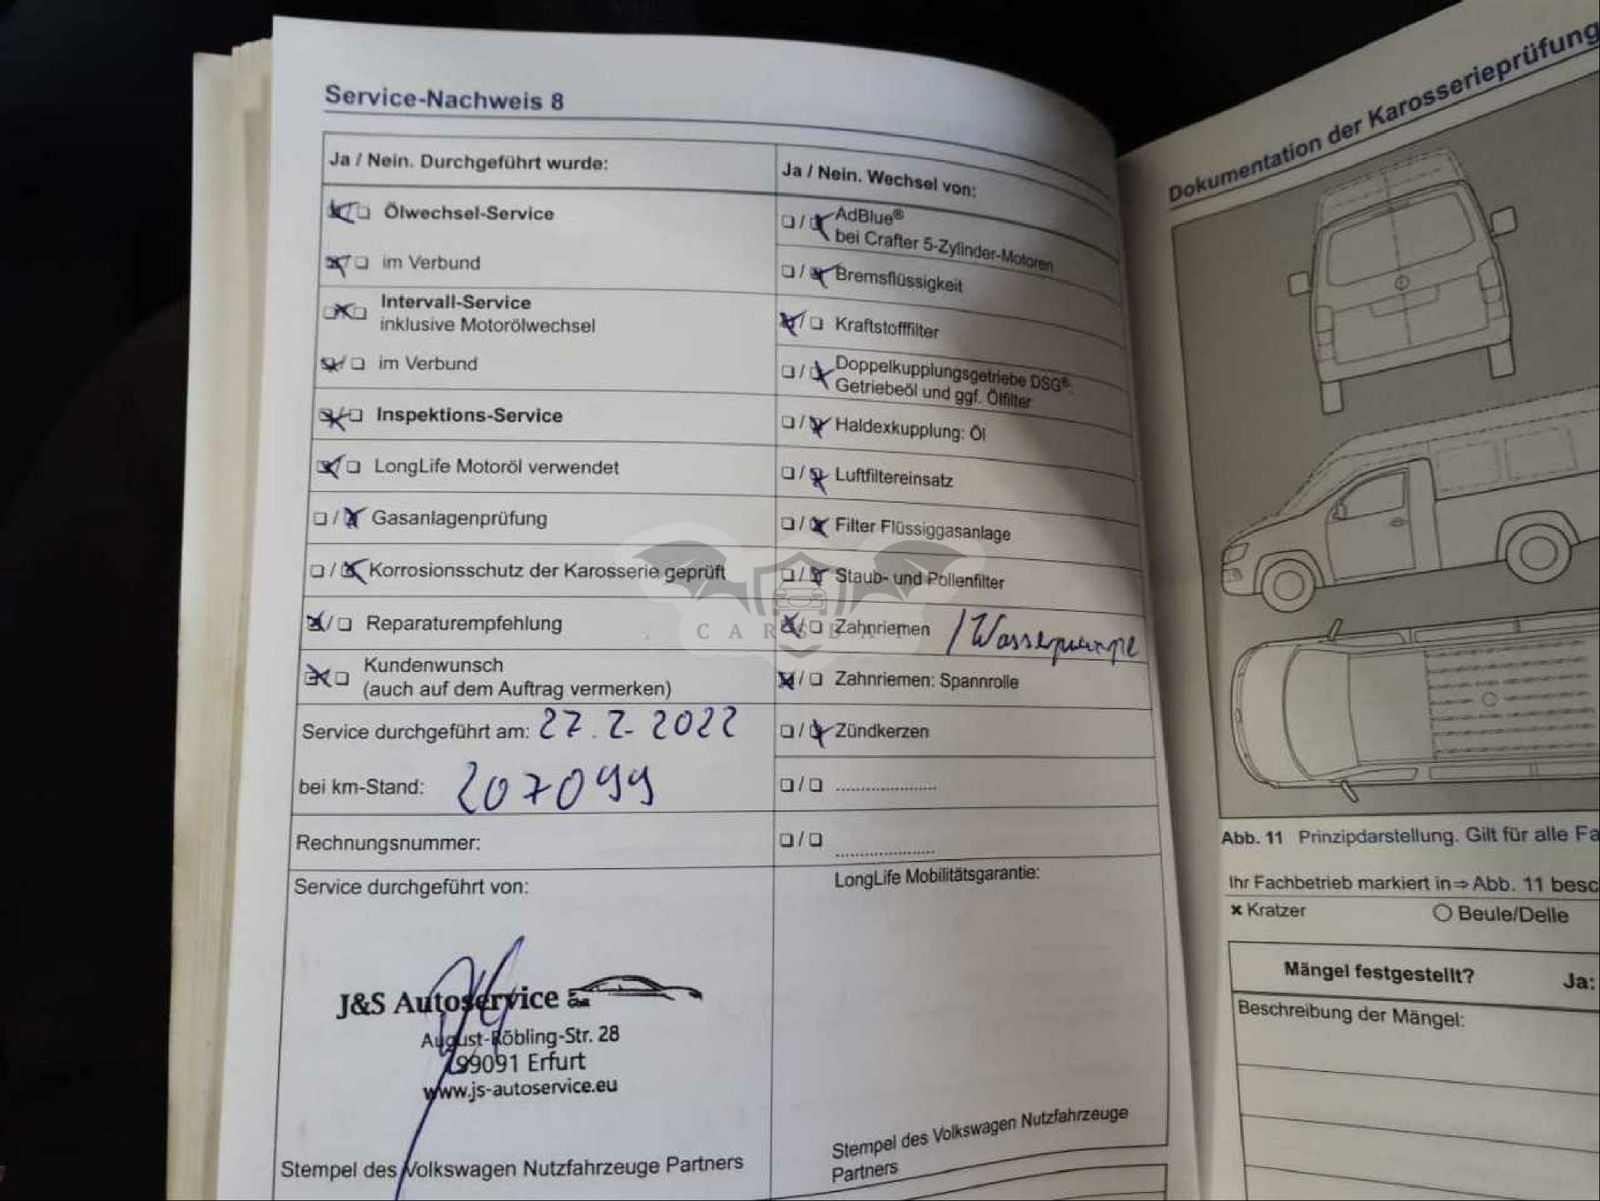 Service-Nachweis 8
Ja / Nein. Durchgeführt wurde:
Ölwechsel-Service
im Verbund
Intervall-Service
inklusive Motorölwechsel
im Verbund
Inspektions-Service
LongLife Motoröl verwendet
Gasanlagenprüfung
Korrosionsschutz der Karosserie geprüft
Reparaturempfehlung
Kundenwunsch
(auch auf dem Auftrag vermerken)
Service durchgeführt am: 27.2.2022
bei km-Stand: 207099
Rechnungsnummer:
Service durchgeführt von:
J&S Autoservice
August-Röbling-Str. 28
99091 Erfurt
www.js-autoservice.eu
Stempel des Volkswagen Nutzfahrzeuge Partners
Ja / Nein. Wechsel von:
AdBlue®
bei Crafter 5-Zylinder-Motoren
Bremsflüssigkeit
Kraftstofffilter
Doppelkupplungsgetriebe DSG®:
Getriebeöl und ggf. Ölfilter
Haldexkupplung: Öl
Luftfiltereinsatz
Filter Flüssiggasanlage
Staub- und Pollenfilter
Zahnriemen /Wasserpumpe
Zahnriemen: Spannrolle
Zündkerzen
LongLife Mobilitätsgarantie:
Stempel des Volkswagen Nutzfahrzeuge
Partners
Dokumentation der Karosserieprüfung
Abb. 11 Prinzipdarstellung. Gilt für alle Fa
Ihr Fachbetrieb markiert in⇒ Abb. 11 besc
× Kratzer
○ Beule/Delle
Mängel festgestellt? Ja:
Beschreibung der Mängel: